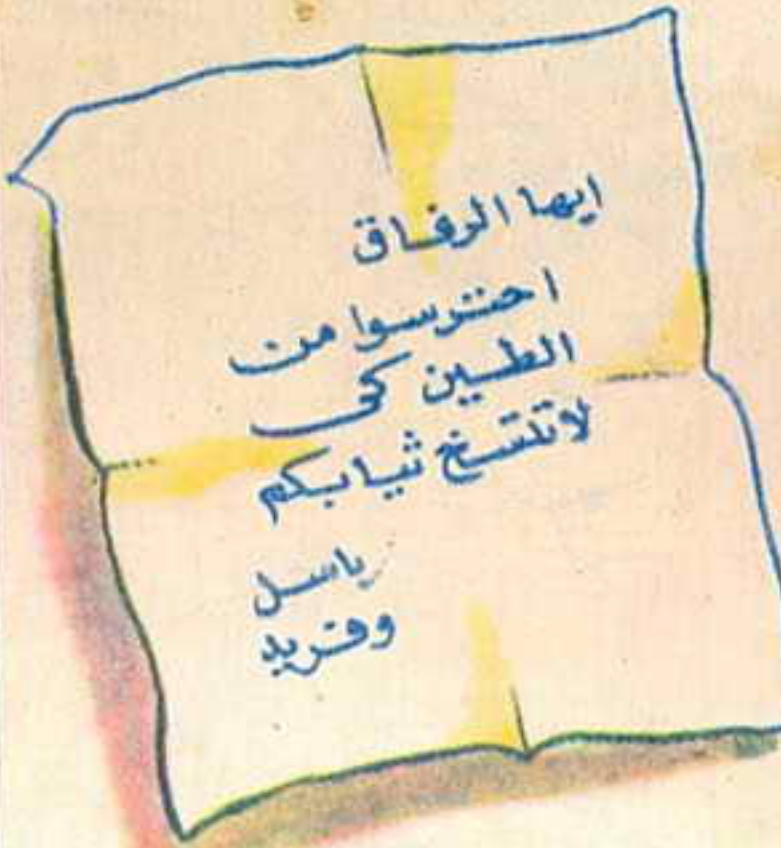 ايها الرفاق
احترسوا من
الطين كي
لا تتسخ ثيابكم
باسل
وفريد